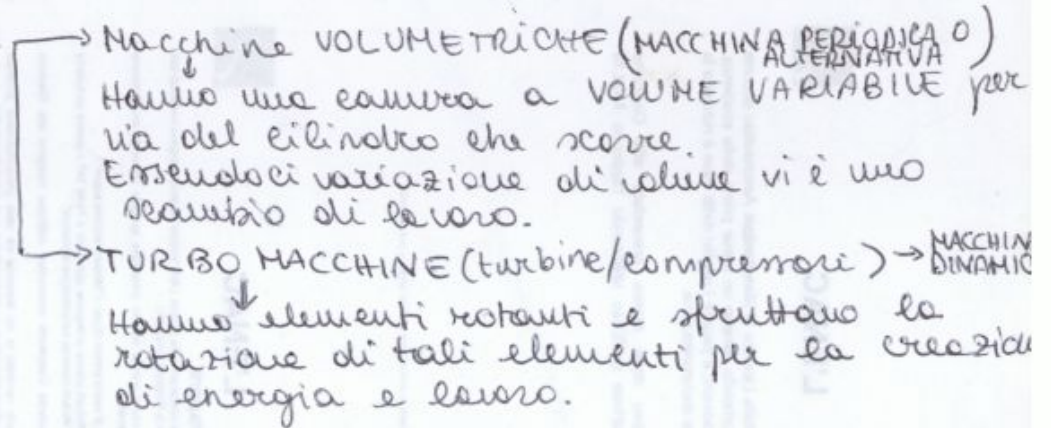 → Macchine VOLUMETRICHE (MACCHINA PERIODICA O
ALTERNATIVA)
↓
Hanno una camera a VOLUME VARIABILE per
via del cilindro che scorre.
Essendoci variazione di volume vi è uno
scambio di lavoro.
→ TURBO MACCHINE (turbine/compressori) → MACCHIN
DINAMIC
↓
Hanno elementi rotanti e sfruttano la
rotazione di tali elementi per la creazion
di energia e lavoro.